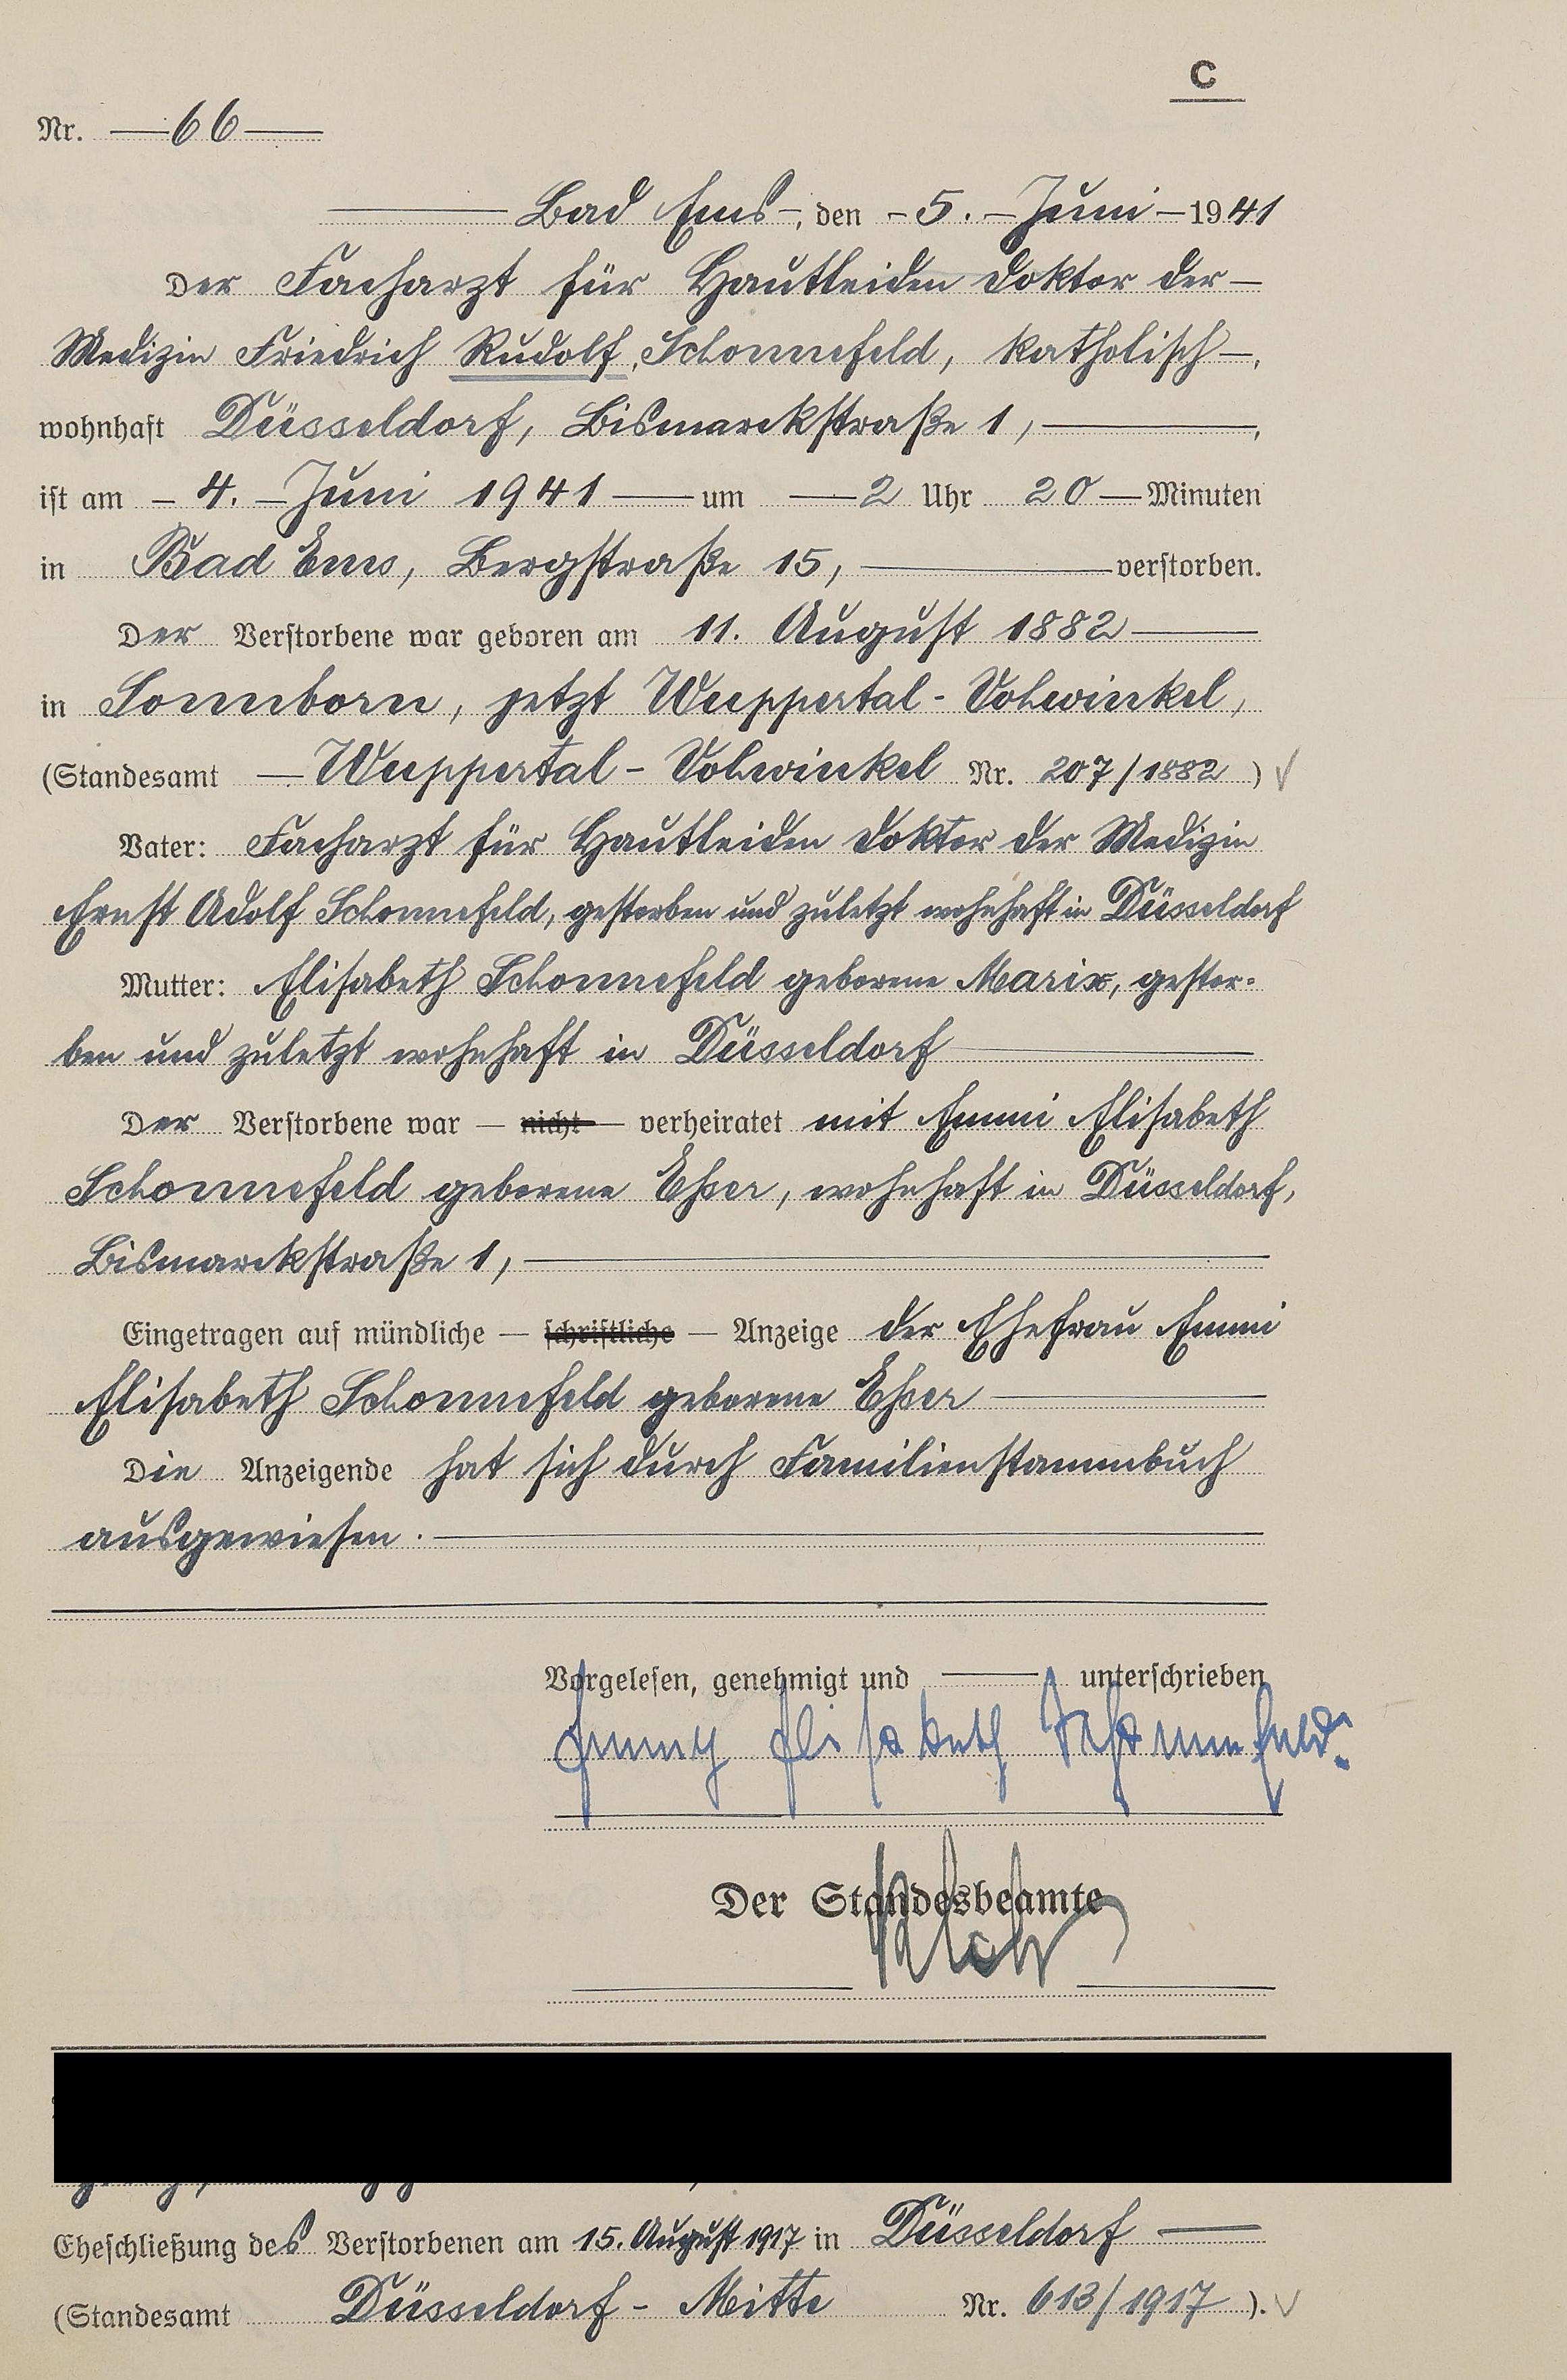 C
Nr. 66
Bad Ems, den 5. Juni 1941
Der Facharzt für Hautleiden Doktor der
Medizin Friedrich Rudolf Schonnefeld, katholisch,
wohnhaft Düsseldorf, Bismarckstraße 1,
ist am 4. Juni 1941 um 2 Uhr 20 Minuten
in Bad Ems, Bergstraße 15, verstorben.
Der Verstorbene war geboren am 11. August 1882
in Sonnborn, jetzt Wuppertal-Vohwinkel,
(Standesamt Wuppertal-Vohwinkel Nr. 207/1882)
Vater: Facharzt für Hautleiden Doktor der Medizin
Ernst Adolf Schonnefeld, gestorben und zuletzt wohnhaft in Düsseldorf
Mutter: Elisabeth Schonnefeld geborene Marix, gestor-
ben und zuletzt wohnhaft in Düsseldorf
Der Verstorbene war — nicht — verheiratet mit Emmi Elisabeth
Schonnefeld geborene Esser, wohnhaft in Düsseldorf,
Bismarckstraße 1,
Eingetragen auf mündliche — schriftliche — Anzeige der Ehefrau Emmi
Elisabeth Schonnefeld geborene Esser
Die Anzeigende hat sich durch Familienstammbuch
ausgewiesen.
Vorgelesen, genehmigt und unterschrieben
Emmy Elisabeth Schonnefeld.
Der Standesbeamte
Eheschließung des Verstorbenen am 15. August 1917 in Düsseldorf
(Standesamt Düsseldorf-Mitte Nr. 613/1917).